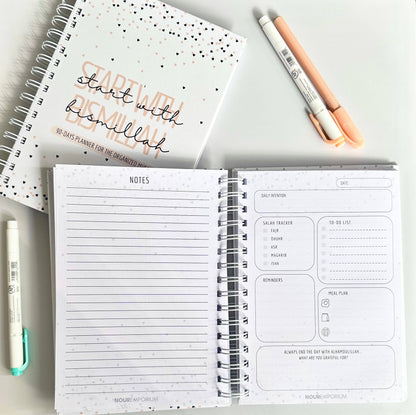 START WITH
start with
BISMILLAH
bismillah
90-DAYS PLANNER FOR THE ORGANIZED
NOTES
NOUREMPORIUM
DATE:
DAILY INTENTION
SALAH TRACKER
FAJR
DHUHR
ASR
MAGHRIB
ISHA
TO-DO LIST
REMINDERS
MEAL PLAN
ALWAYS END THE DAY WITH ALHAMDULILLAH...
WHAT ARE YOU GRATEFUL FOR?
NOUREMPORIUM